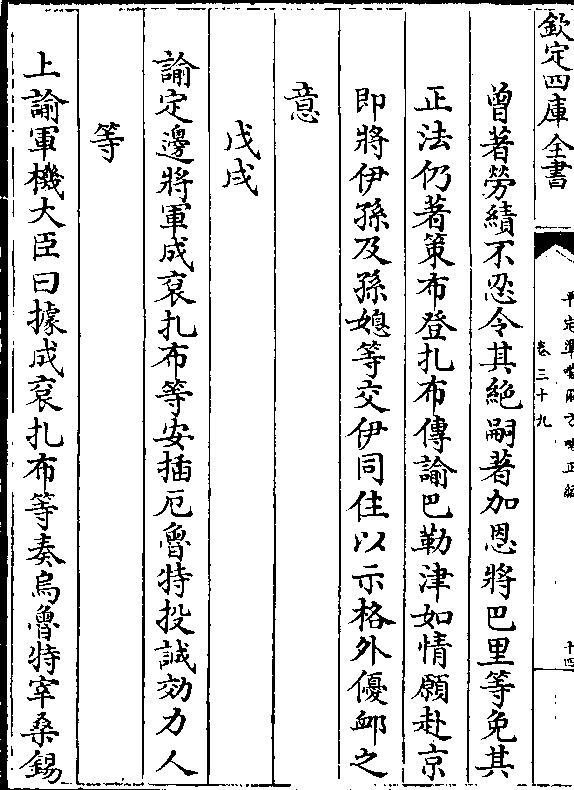 欽定四庫全書
平定準噶爾方略正編
卷三十九
十四
曽著勞績不忍令其絶嗣著加恩將巴里等免其
正法仍著策布登扎布傳諭巴勒津如情願赴京
即將伊孫及孫媳等交伊同住以示格外優䘏之
意
戊戌
諭定邊將軍成衮扎布等安插厄魯特投誠効力人
等
上諭軍機大臣曰據成衮扎布等奏烏魯特宰桑錫